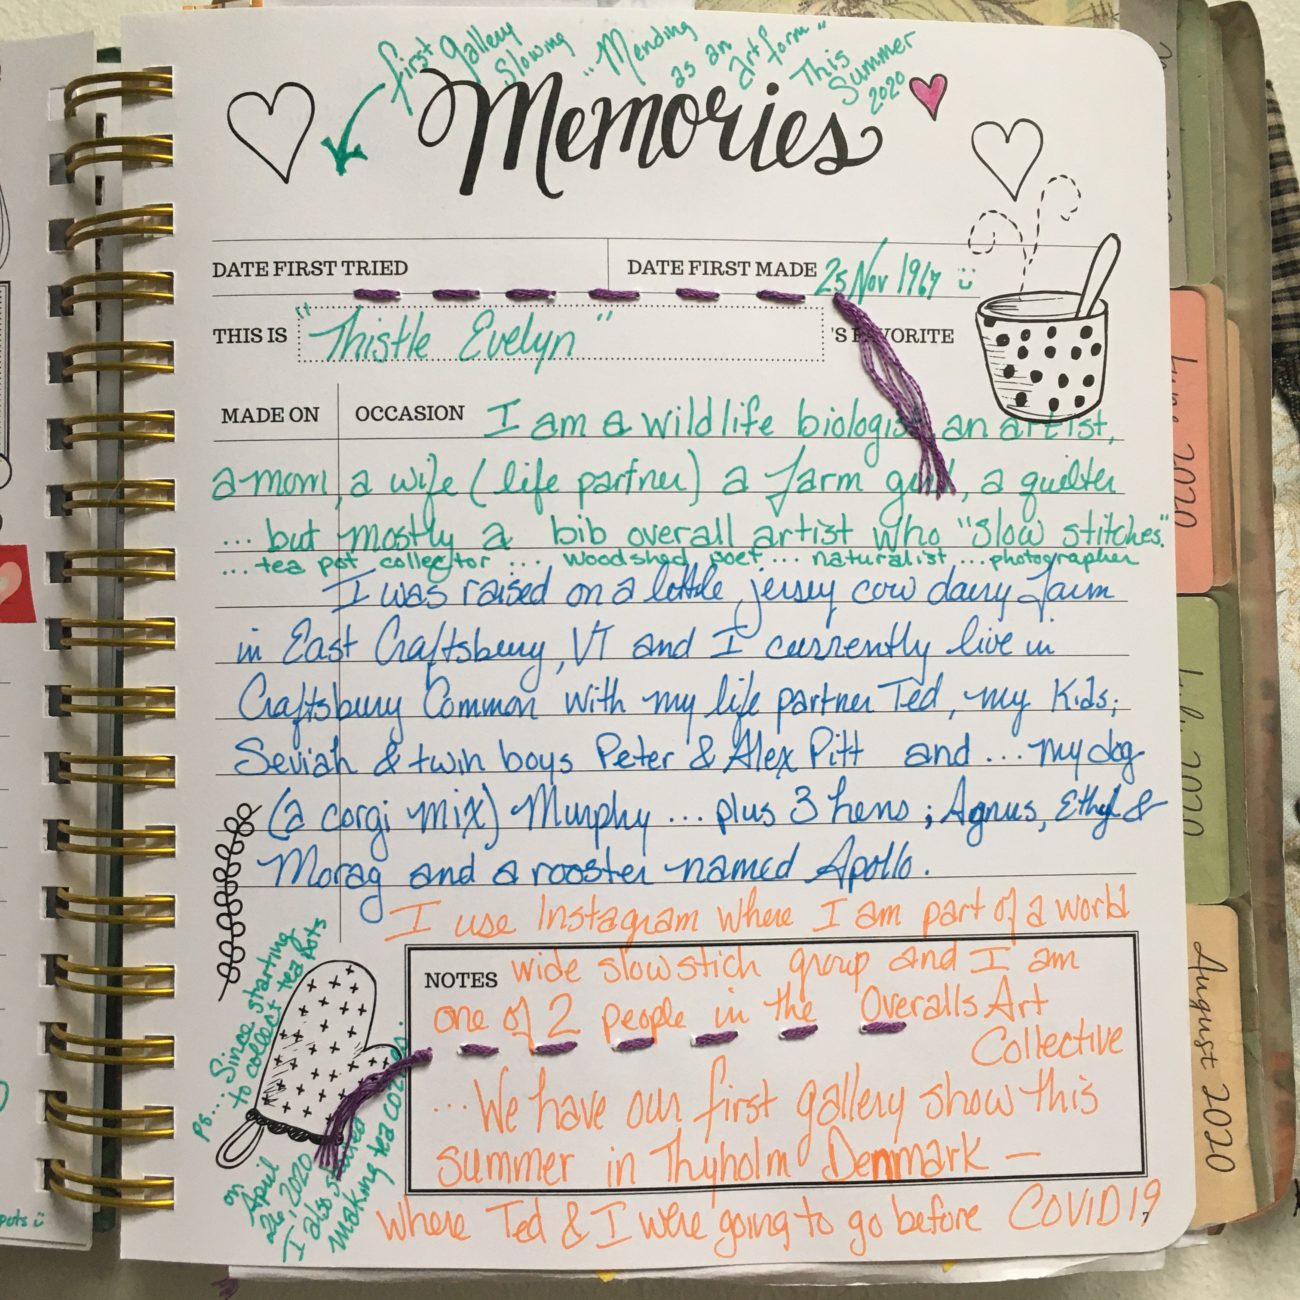 first gallery
slowing "Mending
as an
art form"
This
Summer
2020
Memories
DATE FIRST TRIED
DATE FIRST MADE 25 Nov 1967
THIS IS "Thistle Evelyn" 'S FAVORITE
MADE ON OCCASION I am a wildlife biologist, an artist,
a mom, a wife (life partner) a farm girl, a quilter
... but mostly a bib overall artist who "slow stitches."
... tea pot collector ... woodshed poet ... naturalist ... photographer
I was raised on a little jersey cow dairy farm
in East Craftsbury, VT and I currently live in
Craftsbury Common with my life partner Ted, my kids;
Seviah & twin boys Peter & Alex Pitt and ... my dog
(a corgi mix) Murphy ... plus 3 hens; Agnus, Ethyl &
Morag and a rooster named Apollo.
I use Instagram where I am part of a world
NOTES wide slowstich group and I am
one of 2 people in the Overalls Art
Collective
... We have our first gallery show this
summer in Thyholm Denmark —
where Ted & I were going to go before COVID19
7
Ps.... Since starting
to collect tea pots
on
April
26, 2020
I also started
making tea cozies.
pots
June 2020
July 2020
August 2020